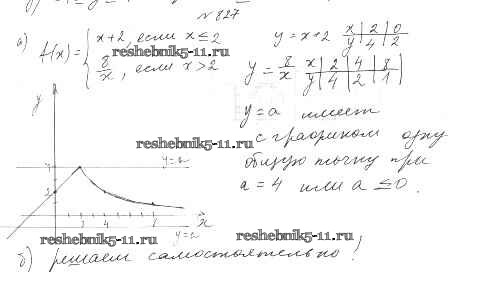 № 827
а) f(x) = { x+2, если x ≤ 2
8/x, если x > 2
y = x+2 x | 2 | 0
y | 4 | 2
y = 8/x x | 2 | 4 | 8
y | 4 | 2 | 1
reshebnik5-11.ru
y = a имеет
с графиком одну
общую точку при
a = 4 или a ≤ 0.
reshebnik5-11.ru
y
y = a
x
y = a
reshebnik5-11.ru
reshebnik5-11.ru
б) решаем самостоятельно!